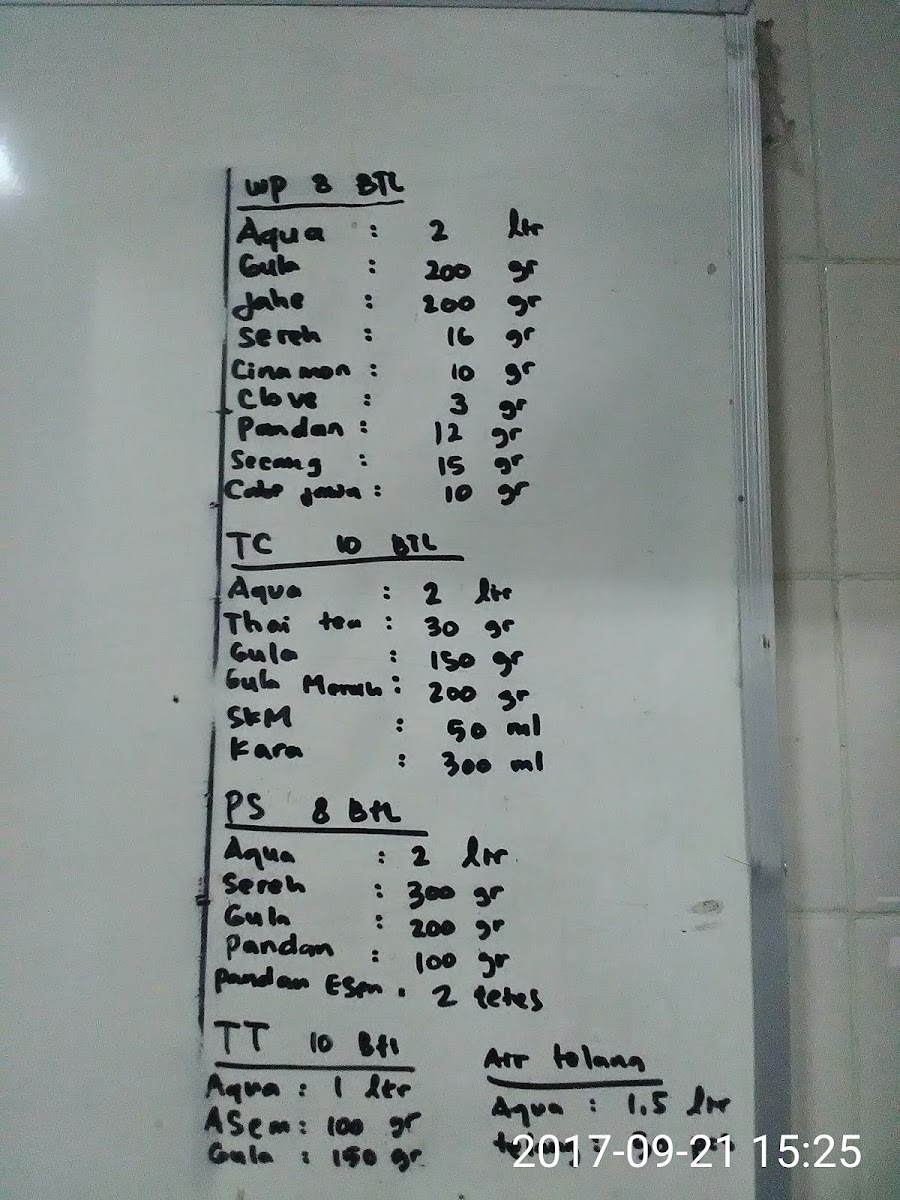 WP 8 BTL
Aqua : 2 ltr
Gula : 200 gr
Jahe : 200 gr
Sereh : 16 gr
Cinamon : 10 gr
Clove : 3 gr
Pandan : 12 gr
Secang : 15 gr
Cabe jawa : 10 gr
TC 10 BTL
Aqua : 2 ltr
Thai tea : 30 gr
Gula : 150 gr
Gula Merah : 200 gr
SKM : 50 ml
Kara : 300 ml
PS 8 Btl
Aqua : 2 ltr
Sereh : 300 gr
Gula : 200 gr
Pandan : 100 gr
Pandan Esen : 2 tetes
TT 10 Btl
Aqua : 1 ltr
Asem : 100 gr
Gula : 150 gr
Air tolang
Aqua : 1.5 ltr
2017-09-21 15:25